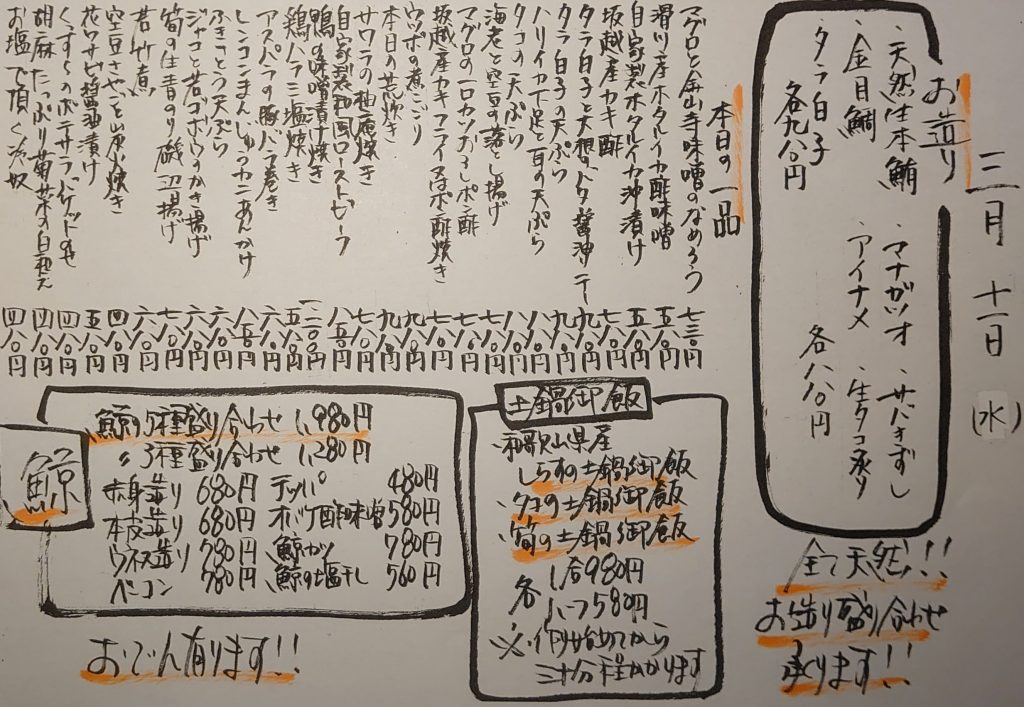 三月十一日(水)
お造り
・天然生本鮪
・金目鯛
・タラ白子
各九八〇円
・マナガツオ
・アイナメ
・サバきずし
・生タコ造り
各八八〇円
全て天然!!
お造り盛り合わせ
承ります!!
本日の一品
マグロと金山寺味噌のなめろう 七三〇円
滑川産ホタルイカ酢味噌 五八〇円
自家製ホタルイカ沖漬け 五八〇円
坂越産カキ酢 七八〇円
タラ白子と大根のバタ醤油ソテー 九八〇円
タラ白子の天ぷら 九八〇円
ハリイカ下足と百合の天ぷら 八八〇円
タコの天ぷら 八八〇円
海老と空豆の落とし揚げ 七八〇円
マグロの一口カツおろしポン酢 七八〇円
坂越産カキフライ又はポン酢焼き 九八〇円
ウツボの煮こごり
本日の荒炊き
サワラの柚庵焼き
自家製和風ローストビーフ
鴨の味噌漬け焼き
鶏ハラミ塩焼き
アスパラの豚バラ巻き
レンコンまんじゅうカニあんかけ
ふきのとう天ぷら
ジャコと若ゴボウのかき揚げ
筍の生青のり磯辺揚げ
若竹煮
空豆さやごと炭火焼き 四八〇円
花ワサビ醤油漬け 五八〇円
くずし冷ポテサラバゲット付き 四八〇円
胡麻たっぷり菊菜の白和え 四八〇円
お塩で頂く冷奴 四八〇円
土鍋御飯
・和歌山県産
しらすの土鍋御飯
・タコの土鍋御飯
・筍の土鍋御飯
各 1合980円
ハーフ580円
※作り始めてから
三十分程かかります
鯨
・鯨の5種盛り合わせ 1,980円
・〃3種盛り合わせ 1,280円
・赤身造り 680円 ・テッパ 480円
・本皮造り 680円 ・オバケ酢味噌 580円
・ウネス造り 780円 ・鯨カツ 780円
・ベーコン 780円 ・鯨の塩干し 560円
おでん有ります!!